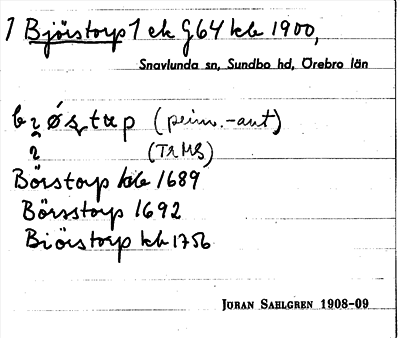 1 Bjöistorp 1 ek G64 kb 1900,
Snavlunda sn, Sundbo hd, Örebro län
(peim.-ant)
(TrMS)
Börstorp kb 1689
Börsstorp 1692
Biörstorp kb 1756
JÖRAN SAHLGREN 1908-09